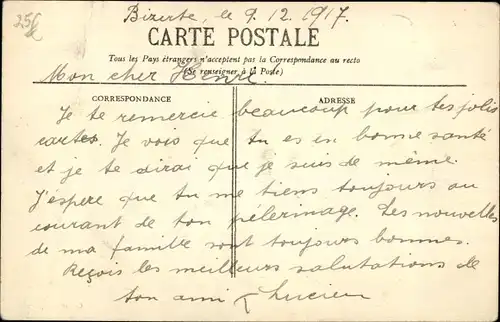 25f
Bizerte, le 9.12.1917.
CARTE POSTALE
Tous les Pays étrangers n'acceptent pas la Correspondance au recto
(Se renseigner à la Poste)
Mon cher Henri.
CORRESPONDANCE
ADRESSE
Je te remercie beaucoup pour tes jolis
cartes. Je vois que tu es en bonne santé
et je te dirai que je suis de même.
J'espère que tu me tiens toujours au
courant de ton pélerinage. Les nouvelles
de ma famille sont toujours bonnes.
Reçois les meilleurs salutations de
ton ami Lucien